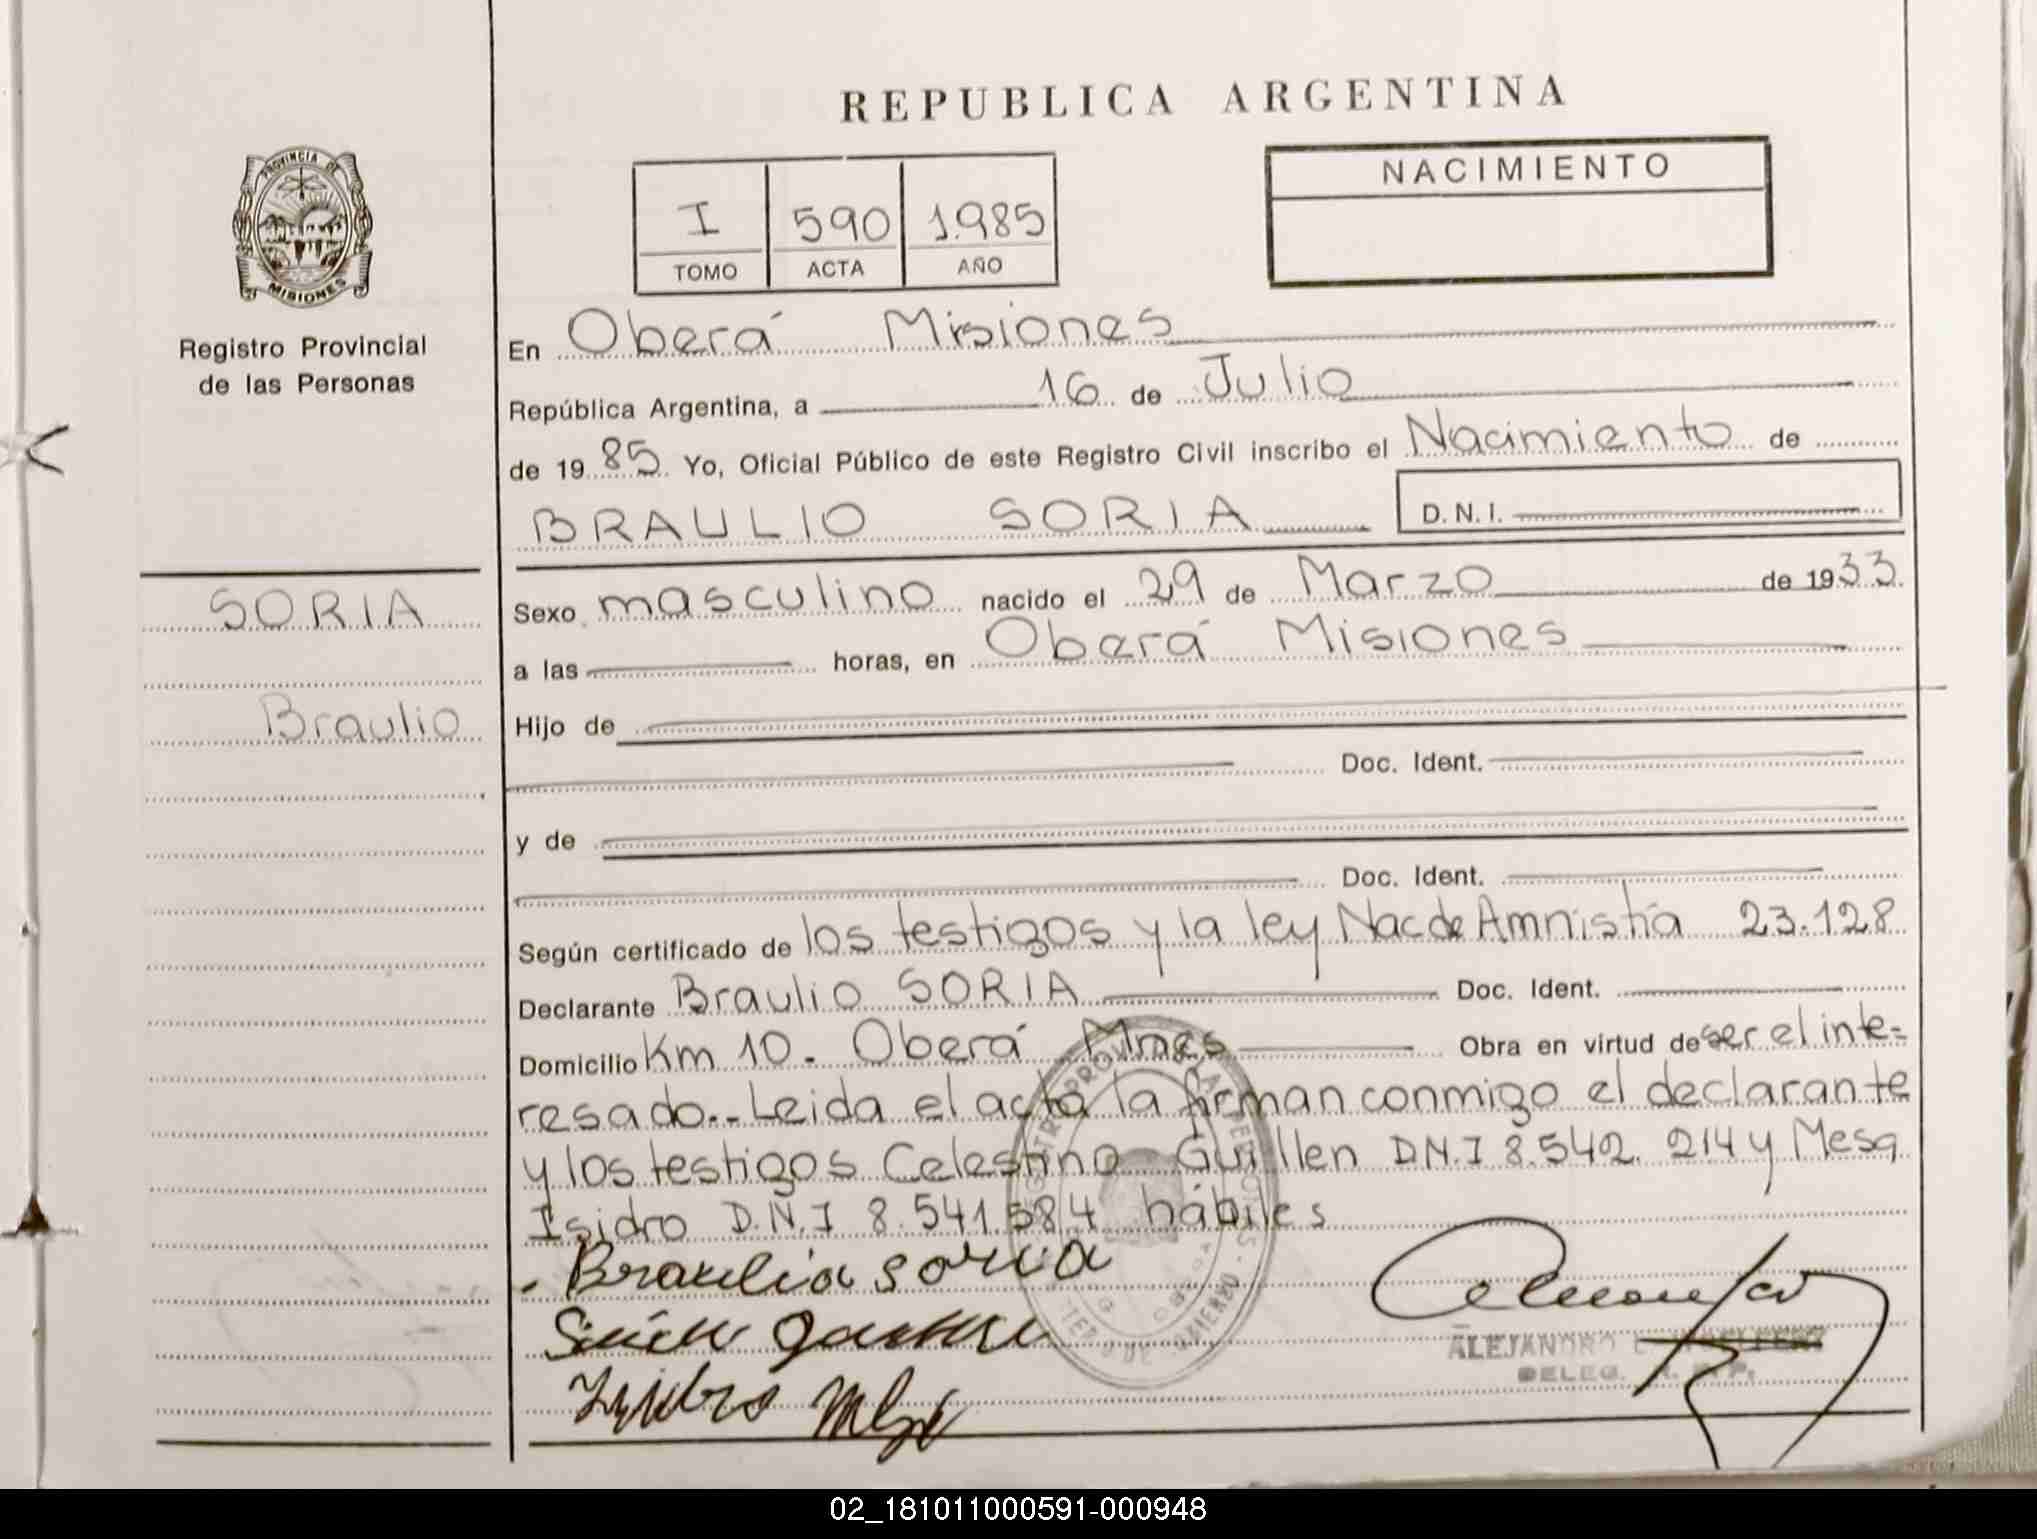 REPUBLICA ARGENTINA
PROVINCIA DE
MISIONES
Registro Provincial
de las Personas
I 590 1.985
TOMO ACTA AÑO
NACIMIENTO
En Oberá Misiones
República Argentina, a 16 de Julio
de 1985 Yo, Oficial Público de este Registro Civil inscribo el Nacimiento de
BRAULIO SORIA D.N.I.
SORIA
Braulio
Sexo masculino nacido el 29 de Marzo de 1933
a las horas, en Oberá Misiones
Hijo de
Doc. Ident.
y de
Doc. Ident.
Según certificado de los testigos y la ley Nac de Amnistía 23.128
Declarante Braulio SORIA Doc. Ident.
Domicilio Km 10. Oberá Mnes Obra en virtud de ser el inte=
resado.- Leida el acta la firman conmigo el declarante
y los testigos Celestino Guillen D.N.I 8.542.214 y Mesa
Isidro D.N.I 8.541.584 hábiles
Braulio Soria
ALEJANDRO
DELEG.
02_181011000591-000948